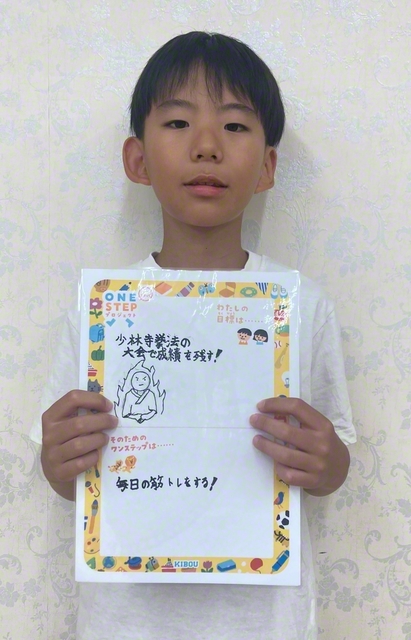 ONE
STEP
プロジェクト
わたしの
目標は……
少林寺拳法の
大会で成績を残す!
そのための
ワンステップは……
毎日の筋トレをする!
KIBOU